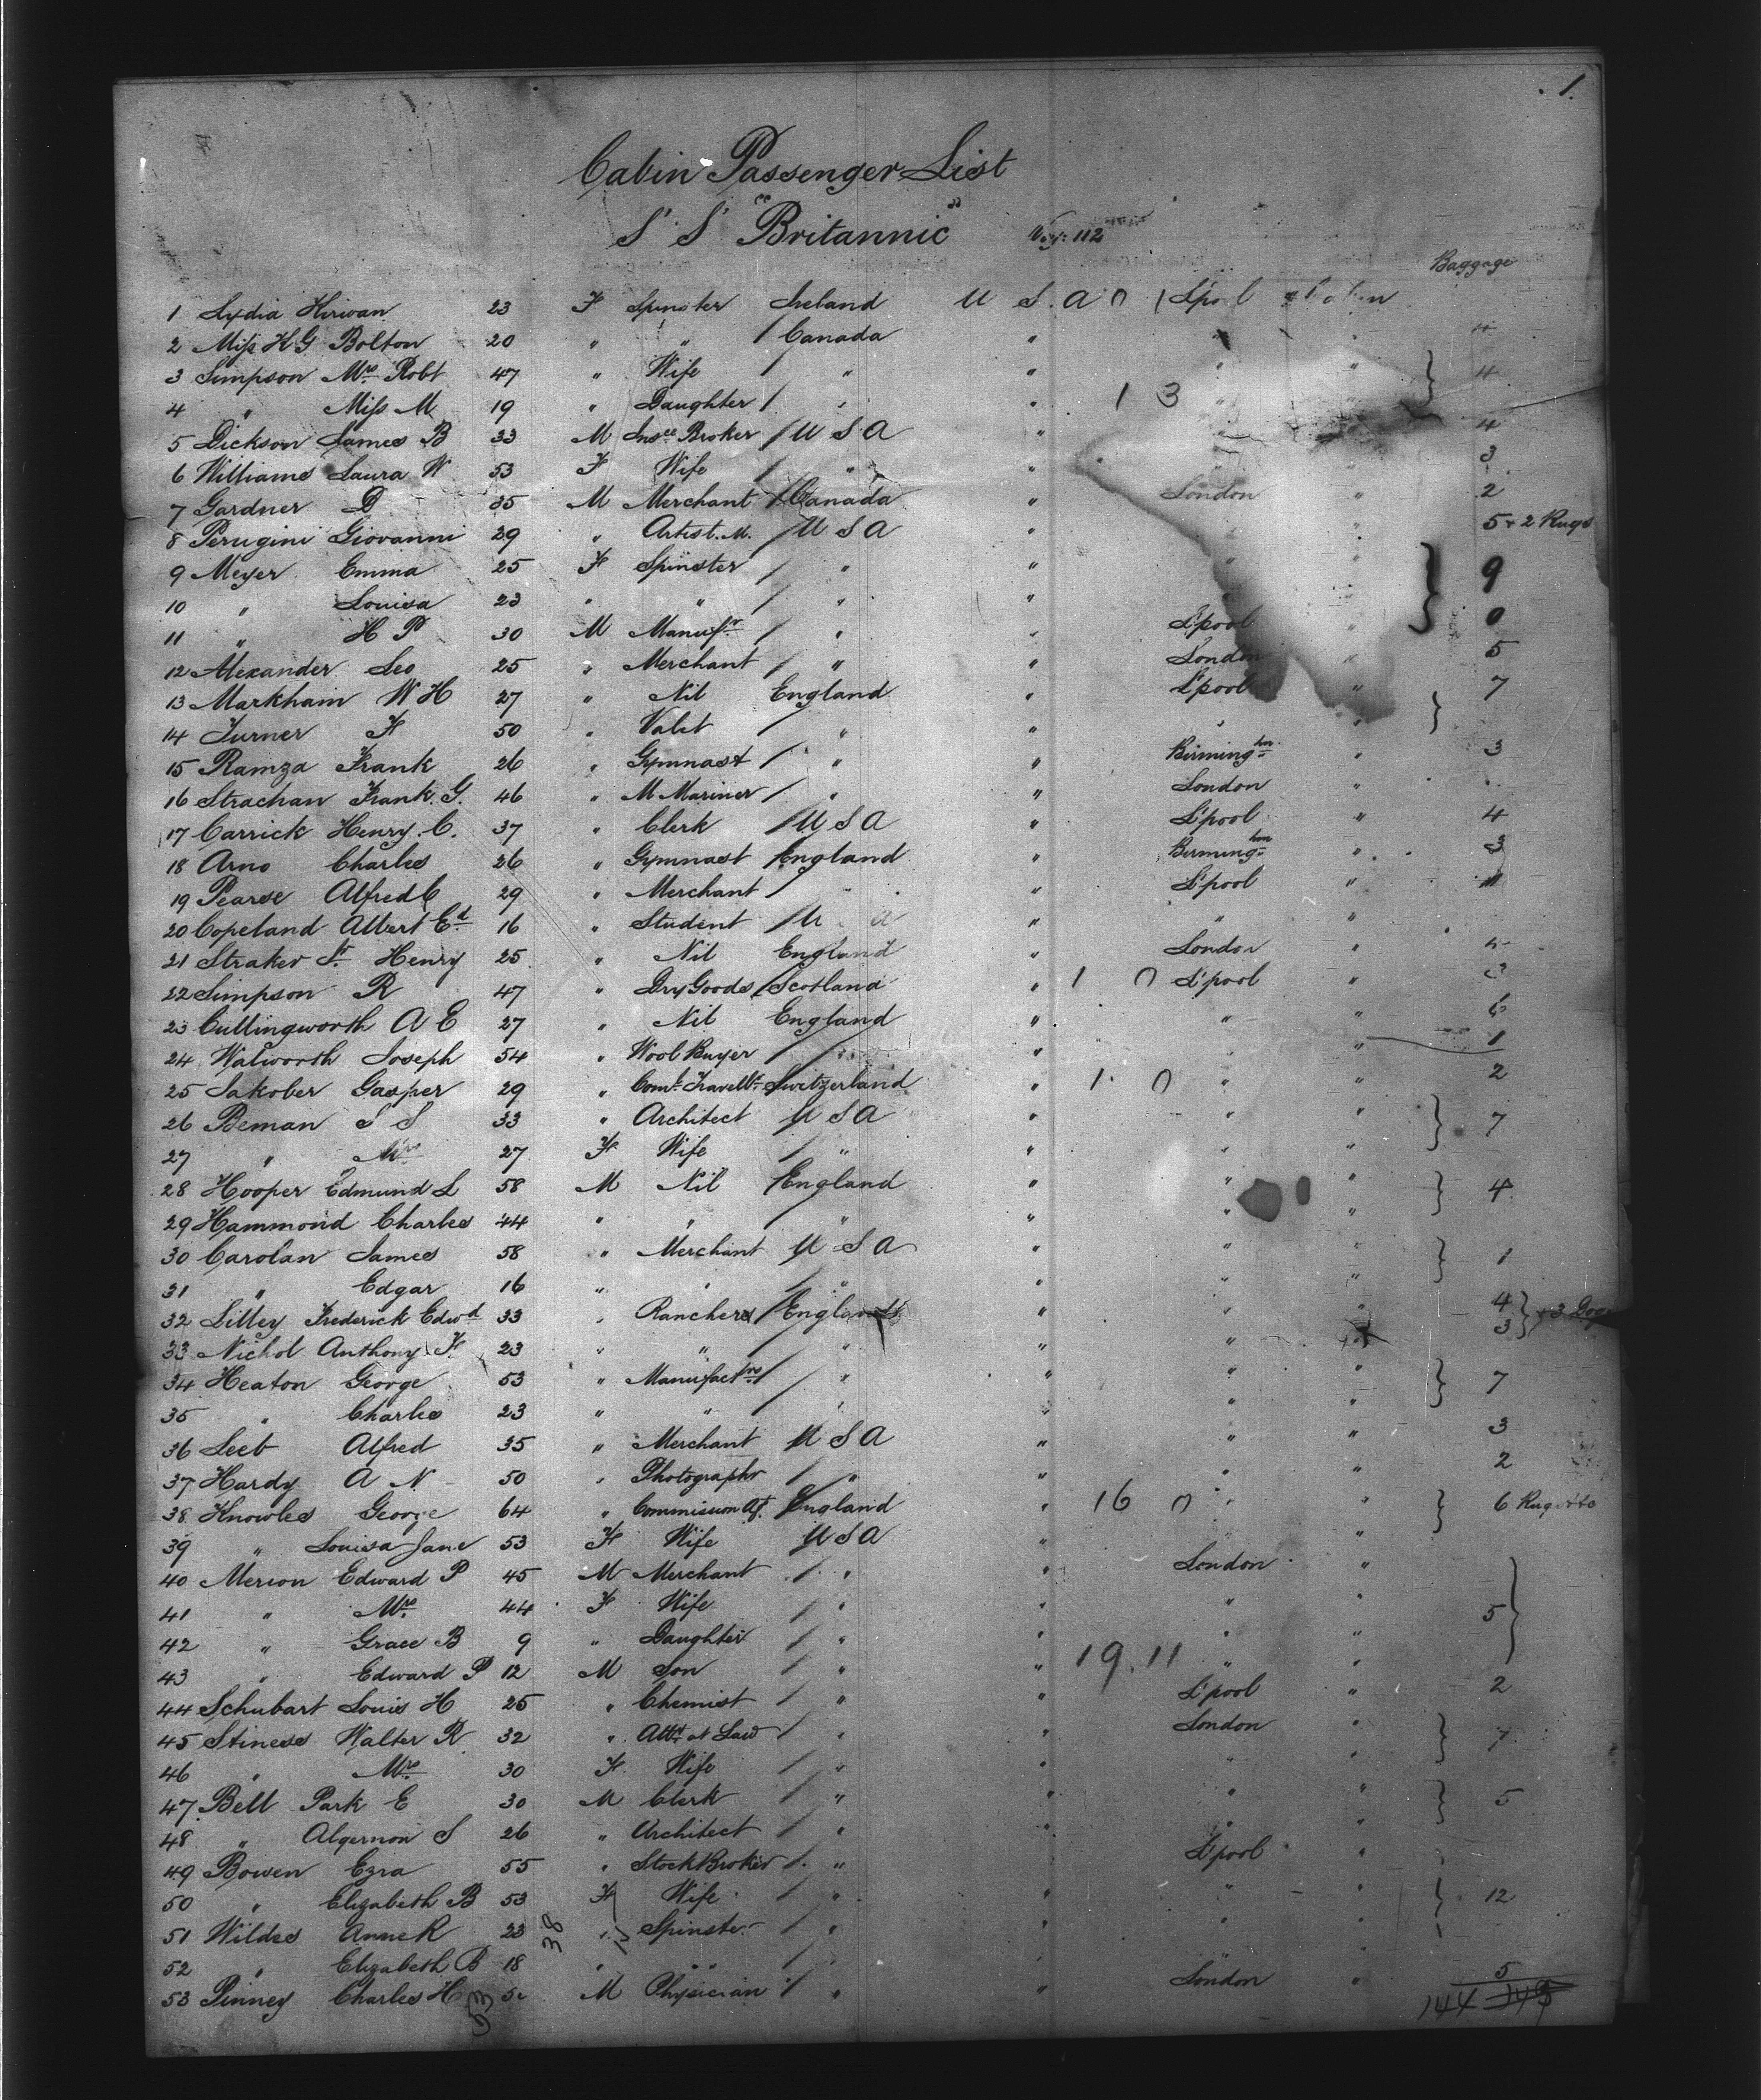 1.
Cabin Passenger List
S S "Britannic" Voy: 112
Baggage
1 Lydia Kirwan 23 F Spinster Ireland U S. A 0 / L'pool
2 Miss H G Bolton 20 " " / Canada " " " 4
3 Simpson Mrs Robt 47 " Wife / " " " " } 4
4 " Miss M 19 " Daughter / " " 1 3 "
5 Dickson James B 33 M Insce Broker / U S A " 4
6 Williams Laura W 53 F Wife / " " " " 3
7 Gardner D 35 M Merchant / Canada " London " 2
8 Perugini Giovanni 29 " Artist. M. / U S A " " 5 + 2 Rugs
9 Meyer Emma 25 F Spinster / " " " " } 9
10 " Louisa 23 " " / " "
11 " H P 30 M Manufr / " " L'pool " 0
12 Alexander Leo 25 " Merchant / " " London " 5
13 Markham W H 27 " Nil England " L'pool " } 7
14 Turner F 50 " Valet / " " " "
15 Ramza Frank 26 " Gymnast / " " Birminghm " 3
16 Strachan Frank. G. 46 " M Mariner / " " London "
17 Carrick Henry. C. 37 " Clerk / U S A " L'pool " 4
18 Arno Charles 26 " Gymnast / England " Birminghm " 3
19 Pearse Alfred C 29 " Merchant / " " L'pool "
20 Copeland Albert Ed 16 " Student / U A " " "
21 Straker Henry 25 " Nil England " London "
22 Simpson R 47 " Dry Goods / Scotland " 1 0 L'pool "
23 Cullingworth A E 27 " Nil England " " "
24 Walworth Joseph 54 " Wool Buyer / " " " 1
25 Jakober Gasper 29 " Coml Travellr Switzerland " 1. 0 " " 2
26 Beman S S 33 " Architect U S A " " " } 7
27 " Mrs 27 F Wife / " " " "
28 Hooper Edmund L 58 M Nil England " " " } 4
29 Hammond Charles 44 " " " " " "
30 Carolan James 58 " Merchant U S A " " " } 1
31 " Edgar 16 " " / " " " "
32 Lilley Frederick Edwd 33 " Ranchers / England " " " 4 } + 3 Dogs
33 Nichol Anthony F. 23 " " " " " 3
34 Heaton George 53 " Manufactrs / " " " " } 7
35 " Charles 23 " " / " " " "
36 Leeb Alfred 35 " Merchant U S A " " " 3
37 Hardy A N 50 " Photographr / " " " " 2
38 Knowles George 64 " Commission Agt. England " 16 0 " " } 6
39 " Louisa Jane 53 F Wife U S A " " "
40 Merion Edward P 45 M Merchant / " " London "
41 " Mrs 44 F Wife / " " " " } 5
42 " Grace B 9 " Daughter / " " " "
43 " Edward P 12 M Son / " " 19. 11 " "
44 Schubart Louis H 25 " Chemist / " " L'pool " 2
45 Stiness Walter R 32 " Atty at Law / " " London " } 7
46 " Mrs 30 F Wife / " " " "
47 Bell Park E 30 M Clerk / " " " " } 5
48 " Algernon S 26 " Architect / " " " "
49 Bowen Ezra 55 " Stock Broker / " L'pool "
50 " Elizabeth B 53 F Wife / " " " " } 12
51 Wildes Anne R 23 " Spinster / " " " "
52 " Elizabeth B 18 " " / " " "
53 Pinney Charles H M Physician / " " London " 5
38
53
144